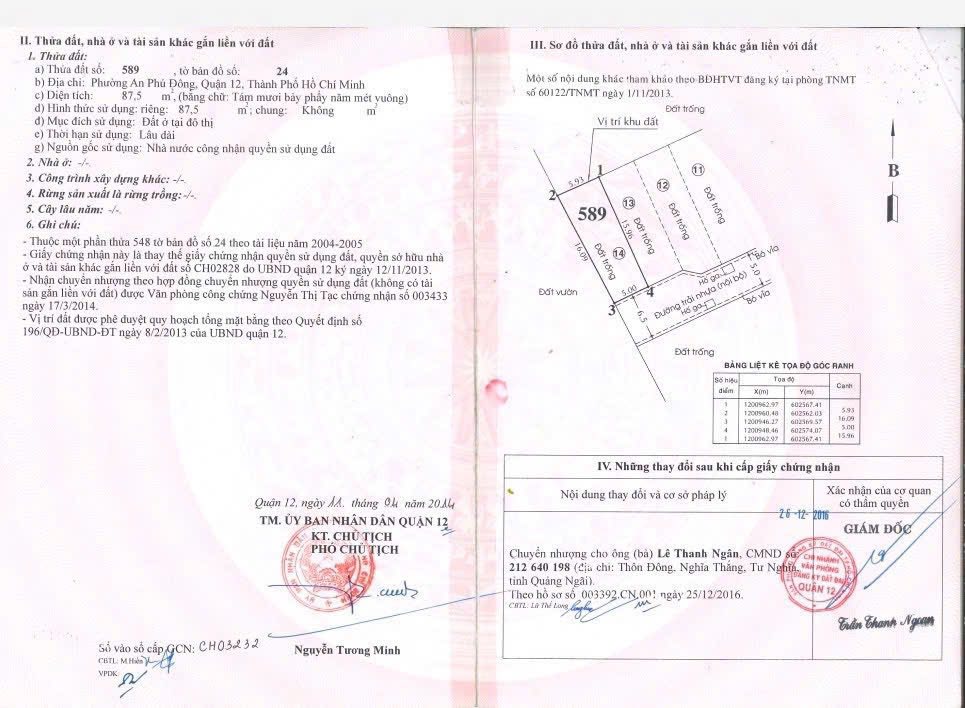 II. Thửa đất, nhà ở và tài sản khác gắn liền với đất
1. Thửa đất:
a) Thửa đất số: 589 , tờ bản đồ số: 24
b) Địa chỉ: Phường An Phú Đông, Quận 12, Thành Phố Hồ Chí Minh
c) Diện tích: 87,5 m², (bằng chữ: Tám mươi bảy phẩy năm mét vuông)
d) Hình thức sử dụng: riêng: 87,5 m²; chung: Không m²
đ) Mục đích sử dụng: Đất ở tại đô thị
e) Thời hạn sử dụng: Lâu dài
g) Nguồn gốc sử dụng: Nhà nước công nhận quyền sử dụng đất
2. Nhà ở: -/-
3. Công trình xây dựng khác: -/-
4. Rừng sản xuất là rừng trồng: -/-
5. Cây lâu năm: -/-
6. Ghi chú:
- Thuộc một phần thửa 548 tờ bản đồ số 24 theo tài liệu năm 2004-2005
- Giấy chứng nhận này là thay thế giấy chứng nhận quyền sử dụng đất, quyền sở hữu nhà
ở và tài sản khác gắn liền với đất số CH02828 do UBND quận 12 ký ngày 12/11/2013.
- Nhận chuyển nhượng theo hợp đồng chuyển nhượng quyền sử dụng đất (không có tài
sản gắn liền với đất) được Văn phòng công chứng Nguyễn Thị Tạc chứng nhận số 003433
ngày 17/3/2014.
- Vị trí đất được phê duyệt quy hoạch tổng mặt bằng theo Quyết định số
196/QĐ-UBND-ĐT ngày 8/2/2013 của UBND quận 12.
Quận 12, ngày 11 tháng 04 năm 2014
TM. ỦY BAN NHÂN DÂN QUẬN 12
KT. CHỦ TỊCH
PHÓ CHỦ TỊCH
Nguyễn Tương Minh
Số vào sổ cấp GCN: CH03232
CBTL: M.Hiền
VPDK
III. Sơ đồ thửa đất, nhà ở và tài sản khác gắn liền với đất
Một số nội dung khác tham khảo theo BĐHTVT đăng ký tại phòng TNMT
số 60122/TNMT ngày 1/11/2013.
Đất trống
Vị trí khu đất
B
1
2
3
4
5.93
16.09
15.96
5.00
589
11
12
13
14
Đất trống
Đất trống
Đất trống
Đất trống
Đất vườn
6.5
5.0
Bó vỉa
Hố ga
Đường trải nhựa (nội bộ)
Hố ga
Bó vỉa
Đất trống
BẢNG LIỆT KÊ TỌA ĐỘ GÓC RANH
Số hiệu điểm Tọa độ Cạnh
X(m) Y(m)
1 1200962.97 602567.41
5.93
2 1200960.48 602562.03
16.09
3 1200946.27 602569.57
5.00
4 1200948.46 602574.07
15.96
1 1200962.97 602567.41
IV. Những thay đổi sau khi cấp giấy chứng nhận
Nội dung thay đổi và cơ sở pháp lý
Xác nhận của cơ quan
có thẩm quyền
26-12-2016
GIÁM ĐỐC
Chuyển nhượng cho ông (bà) Lê Thanh Ngân, CMND số
212 640 198 (địa chỉ: Thôn Đông, Nghĩa Thắng, Tư Nghĩa,
tỉnh Quảng Ngãi).
Theo hồ sơ số 003392.CN.001 ngày 25/12/2016.
CBTL: Lã Thế Long
CHI NHÁNH
VĂN PHÒNG
ĐĂNG KÝ ĐẤT ĐAI
QUẬN 12
Trần Thanh Ngoan